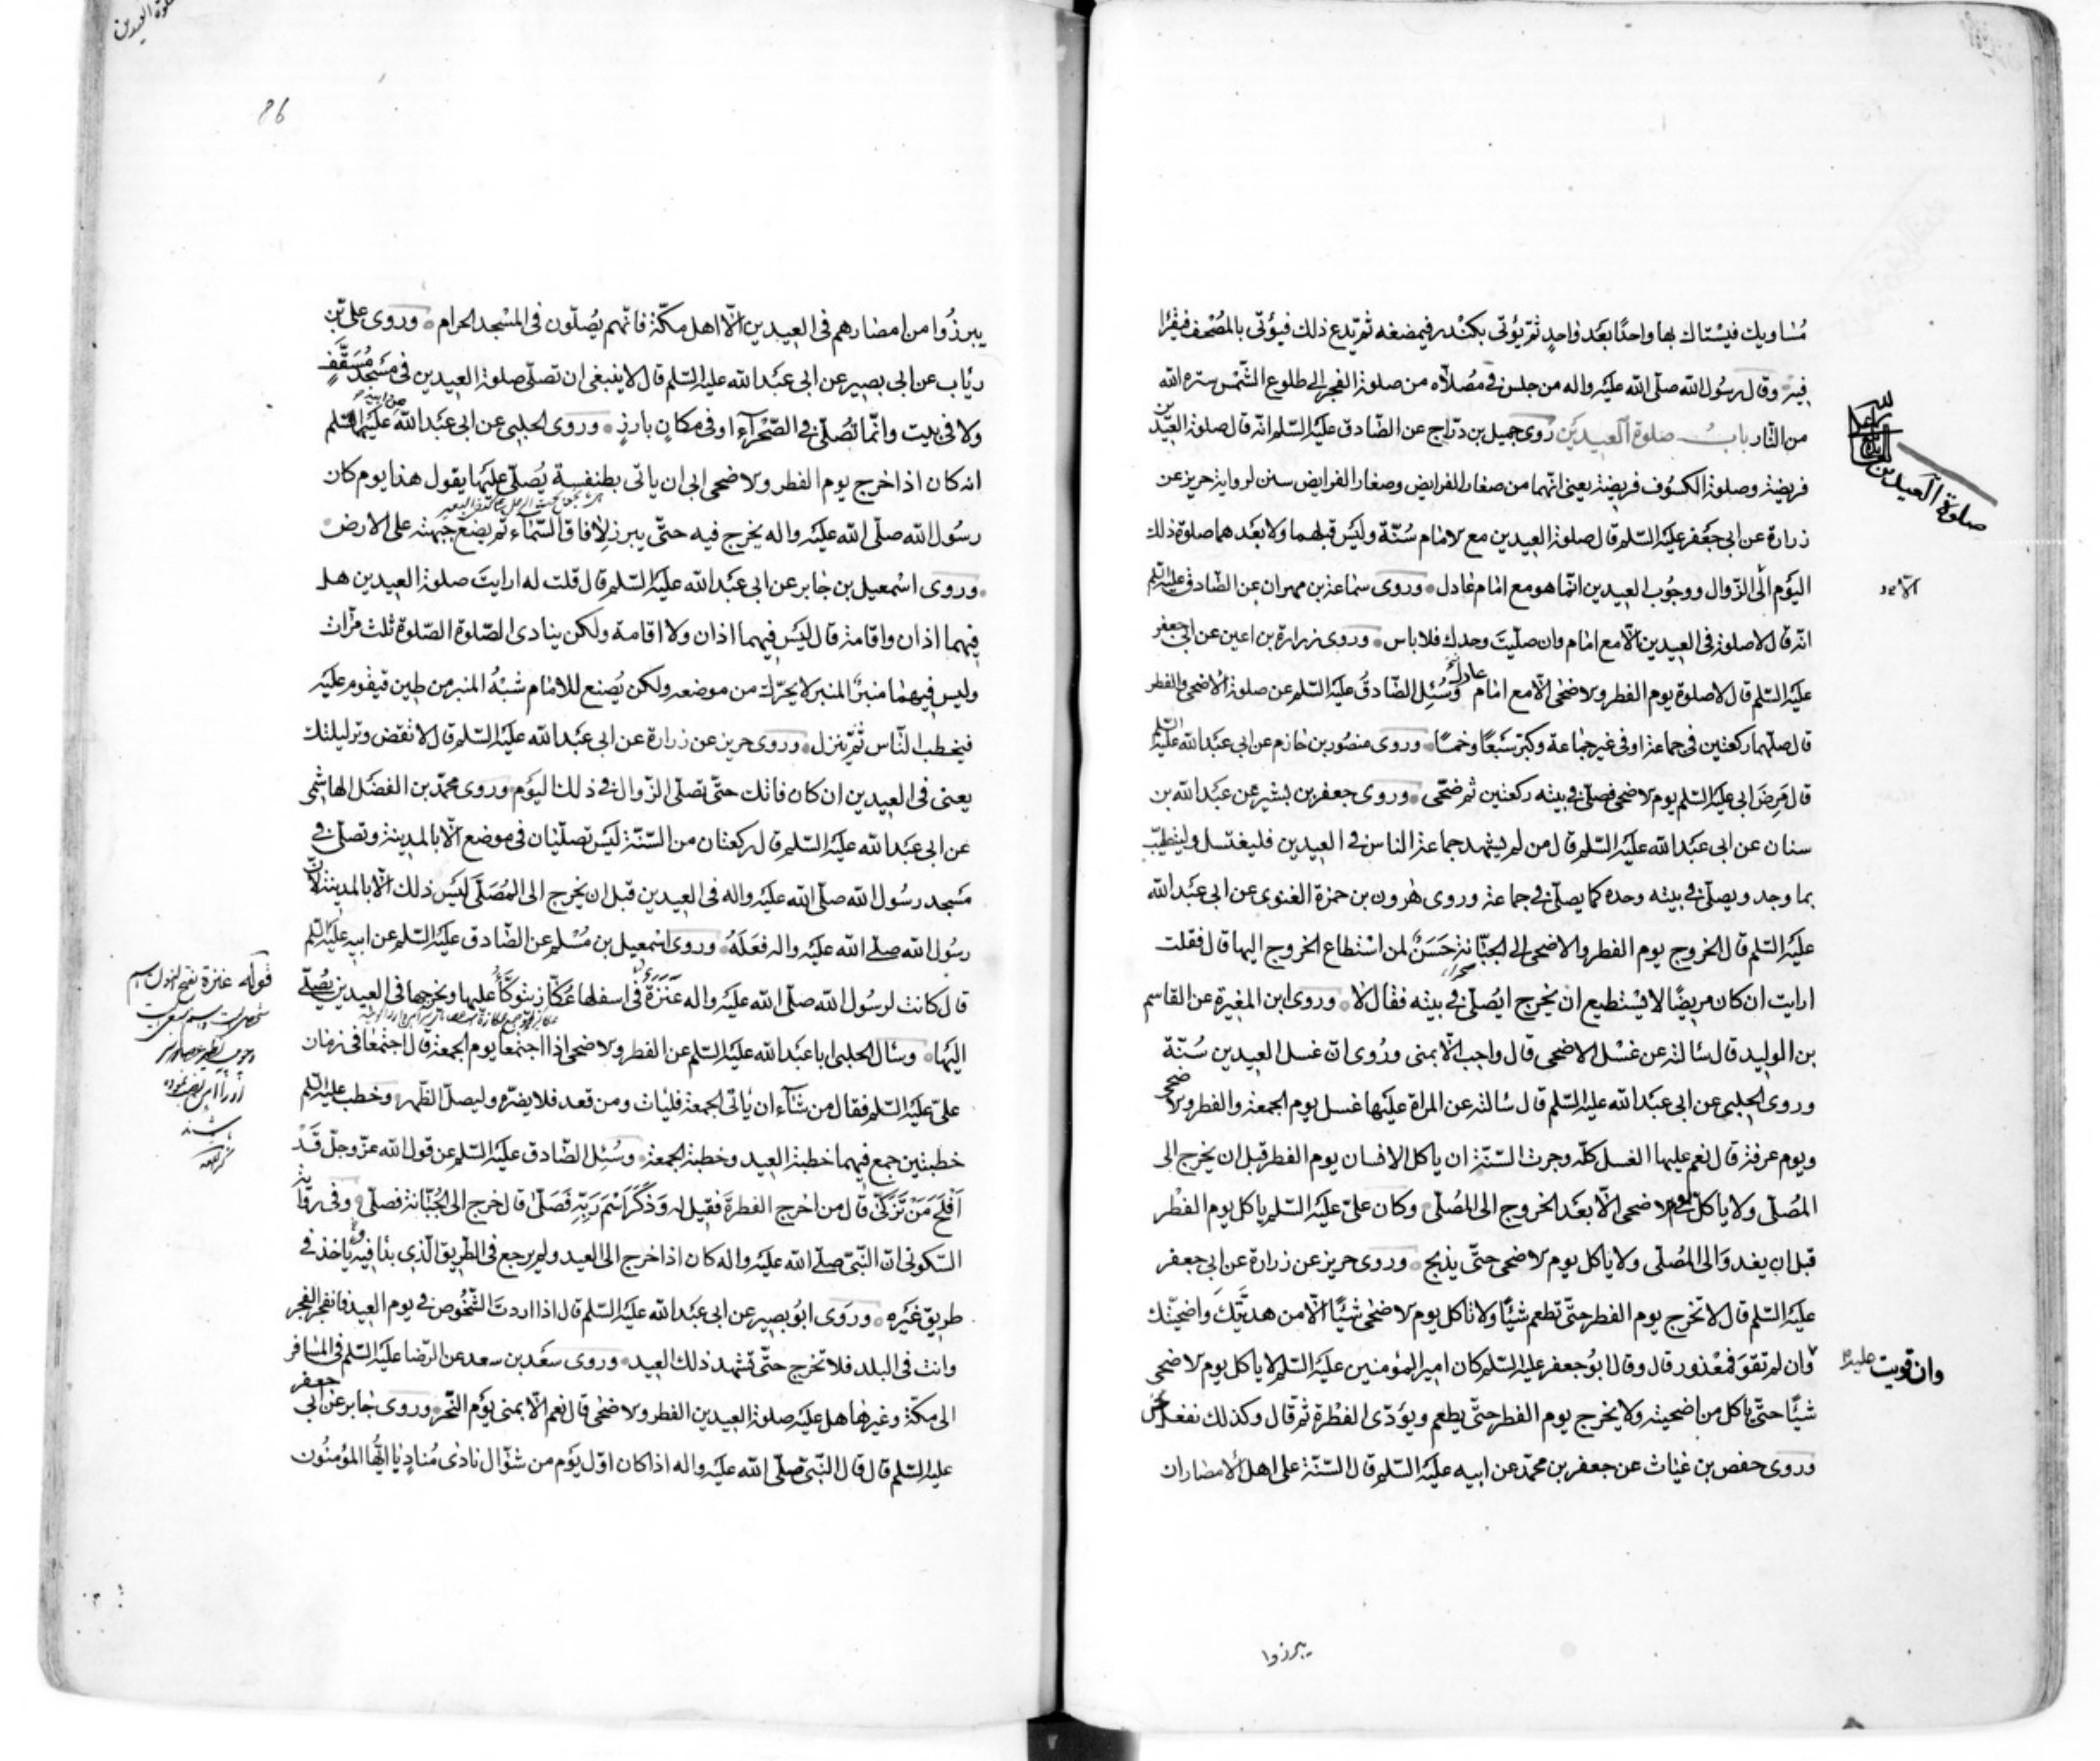 مساويك فيستاك بها واحدًا بعد واحدٍ ثم يؤتى بكندر فيمضغه ثم يدع ذلك فيؤتى بالمصحف فيقرا
فيه وقال رسول الله صلّى الله عليه واله من جلس في مصلّاه من صلوة الفجر الى طلوع الشمس ستره الله
من النار باب صلوة العيدين روى جميل بن درّاج عن الصّادق عليه السّلم انّه قال صلوة العيدين
فريضة وصلوة الكسوف فريضة يعنى انّهما من صغار الفرايض وصغار الفرايض سنن لرواية حريز عن
زرارة عن ابى جعفر عليه السّلم قال صلوة العيدين مع الامام سُنّة وليس قبلهما ولا بعدهما صلوة ذلك
اليوم الى الزّوال ووجوب العيدين انّما هو مع امام عادل وروى سماعة بن مهران عن الصّادق عليه السلم
انّه قال لا صلوة فى العيدين الّا مع امام وان صلّيت وحدك فلا باس وروى زرارة بن اعين عن ابى جعفر
عليه السّلم قال لا صلوة يوم الفطر والاضحى الّا مع امام عادل وسُئِل الصّادق عليه السّلم عن صلوة الاضحى والفطر
قال صلّهما ركعتين فى جماعة او فى غير جماعة وكبّر سَبعًا وخمسًا وروى منصور بن حازم عن ابى عبد الله عليه السلم
قال مَرِضَ ابى عليه السّلم يوم الاضحى فصلّى في بيته ركعتين ثم ضحّى وروى جعفر بن بشير عن عبد الله بن
سنان عن ابى عبد الله عليه السّلم قال من لم يشهد جماعة الناس في العيدين فليغتسل وليتطيّب
بما وجد ويصلّى في بيته وحده كما يصلّى في جماعة وروى هٰرون بن حمزة الغنوى عن ابى عبد الله
عليه السّلم قال الخروج يوم الفطر والاضحى الى الجبّانة حَسَنٌ لمن استطاع الخروج اليها قال فقلت
ارايت ان كان مريضًا لا يستطيع ان يخرج ايُصلّى في بيته فقال لا وروى ابن المغيرة عن القاسم
بن الوليد قال سالته عن غسل الاضحى قال واجب الّا بمنى ورُوى انّ غسل العيدين سُنّة
وروى الحلبى عن ابى عبد الله عليه السّلم قال سالته عن المراة عليها غسل يوم الجمعة والفطر والاضحى
ويوم عرفة قال نعم عليها الغسل كلّه وجرت السّنّة ان ياكل الانسان يوم الفطر قبل ان يخرج الى
المُصلّى ولا ياكل في يوم الاضحى الّا بعد الخروج الى المُصلّى وكان علىّ عليه السّلم ياكل يوم الفطر
قبل ان يغدو الى المُصلّى ولا ياكل يوم الاضحى حتّى يذبح وروى حريز عن زرارة عن ابى جعفر
عليه السّلم قال لا تخرج يوم الفطر حتّى تطعم شيئًا ولا تاكل يوم الاضحى شيئًا الّا من هديّتك واضحيّتك
وان لم تقوَ فمعذور قال وقال ابو جعفر عليه السّلم كان امير المؤمنين عليه السّلم لا ياكل يوم الاضحى
شيئًا حتّى ياكل من اضحيته ولا يخرج يوم الفطر حتّى يطعم ويؤدّى الفطرة ثم قال وكذلك نفعل نحن
وروى حفص بن غياث عن جعفر بن محمّد عن ابيه عليه السّلم قال السّنّة على اهل الامصار ان
صلوة العيدين
وان قويت عليه
يبرزوا
يبرزُوا من امصارهم فى العيدين الّا اهل مكّة فانّهم يُصلّون فى المسجد الحرام وروى على بن
رئاب عن ابى بصير عن ابى عبد الله عليه السّلم قال لا ينبغى ان تصلّى صلوة العيدين فى مسجد مُسقّفٍ
ولا فى بيت وانّما تُصلّى في الصّحرآء او فى مكانٍ بارزٍ وروى الحلبى عن ابى عبد الله عن ابيه عليهما السّلم
انه كان اذا خرج يوم الفطر والاضحى ابى ان ياتى بطنفسة يُصلّى عليها يقول هذا يوم كان
رسُول الله صلّى الله عليه واله يخرج فيه حتّى يبرز لآفاق السّماء ثم يضع جبهته على الارض
وروى اسمعيل بن جابر عن ابى عبد الله عليه السّلم قال قلت له ارايتَ صلوة العيدين هل
فيهما اذان واقامة قال ليس فيهما اذان ولا اقامة ولكن ينادى الصّلوة الصّلوة ثلث مرّات
وليس فيهما منبرٌ المنبر لا يحرّك من موضعه ولكن يُصنع للامام شبْهُ المنبر من طين فيقوم عليه
فيخطب النّاس ثم ينزل وروى حريز عن زرارة عن ابى عبد الله عليه السّلم قال لا تقض وتر ليلتك
يعنى فى العيدين ان كان فاتك حتّى تصلّى الزّوال في ذلك اليوم وروى محمّد بن الفضل الهاشمى
عن ابى عبد الله عليه السّلم قال ركعتان من السّنّة ليس تصلّيان فى موضع الّا بالمدينة وتصلّى في
مسجد رسُول الله صلّى الله عليه واله فى العيدين قبل ان يخرج الى المُصَلّى ليس ذلك الّا بالمدينة لانّ
رسُول الله صلّى الله عليه واله فعَلَهُ وروى اسمعيل بن مُسلم عن الصّادق عليه السّلم عن ابيه عليه السّلم
قال كانت لرسُول الله صلّى الله عليه واله عَنَزَةٌ فى اسفلها عُكّاز يتوكّأ عليها ويخرجها فى العيدين يُصلّى
اليها وسئال الحلبى ابا عبد الله عليه السّلم عن الفطر والاضحى اذا اجتمعا يوم الجمعة قال اجتمعا فى زمان
علىّ عليه السّلم فقال من شآء ان ياتى الجمعة فليات ومن قعد فلا يضرّه وليصلّ الظّهر وخطب عليه السّلم
خطبتين جمع فيهما خطبة العيد وخطبة الجمعة وسُئِل الصّادق عليه السّلم عن قول الله عزّ وجلّ قَدْ
اَفْلَحَ مَنْ تَزَكّى قال من اخرج الفطرة فقيل له وَذَكَرَ اسْمَ رَبِّه فَصَلّى قال خرج الى الجبّانة فصلّى وفى رواية
السّكونى انّ النّبىّ صلّى الله عليه واله كان اذا خرج الى العيد ولم يرجع فى الطّريق الّذى بدا فيه ياخذ في
طريق غيره وروَى ابُو بصير عن ابى عبد الله عليه السّلم قال اذا اردتَ الشّخُوص في يوم العيد فانفجر الفجر
وانت فى البلد فلا تخرج حتّى تشهد ذلك العيد وروى سعد بن سعد عن الرّضا عليه السّلم فى المسافر
الى مكّة وغيرها هل عليه صلوة العيدين الفطر والاضحى قال نعم الّا بمنى يوم النّحر وروى جابر عن ابى جعفر
عليه السّلم قال قال النّبىّ صلّى الله عليه واله اذا كان اوّل يوم من شوّال نادى مُنادٍ يا ايّها المؤمنُون
86